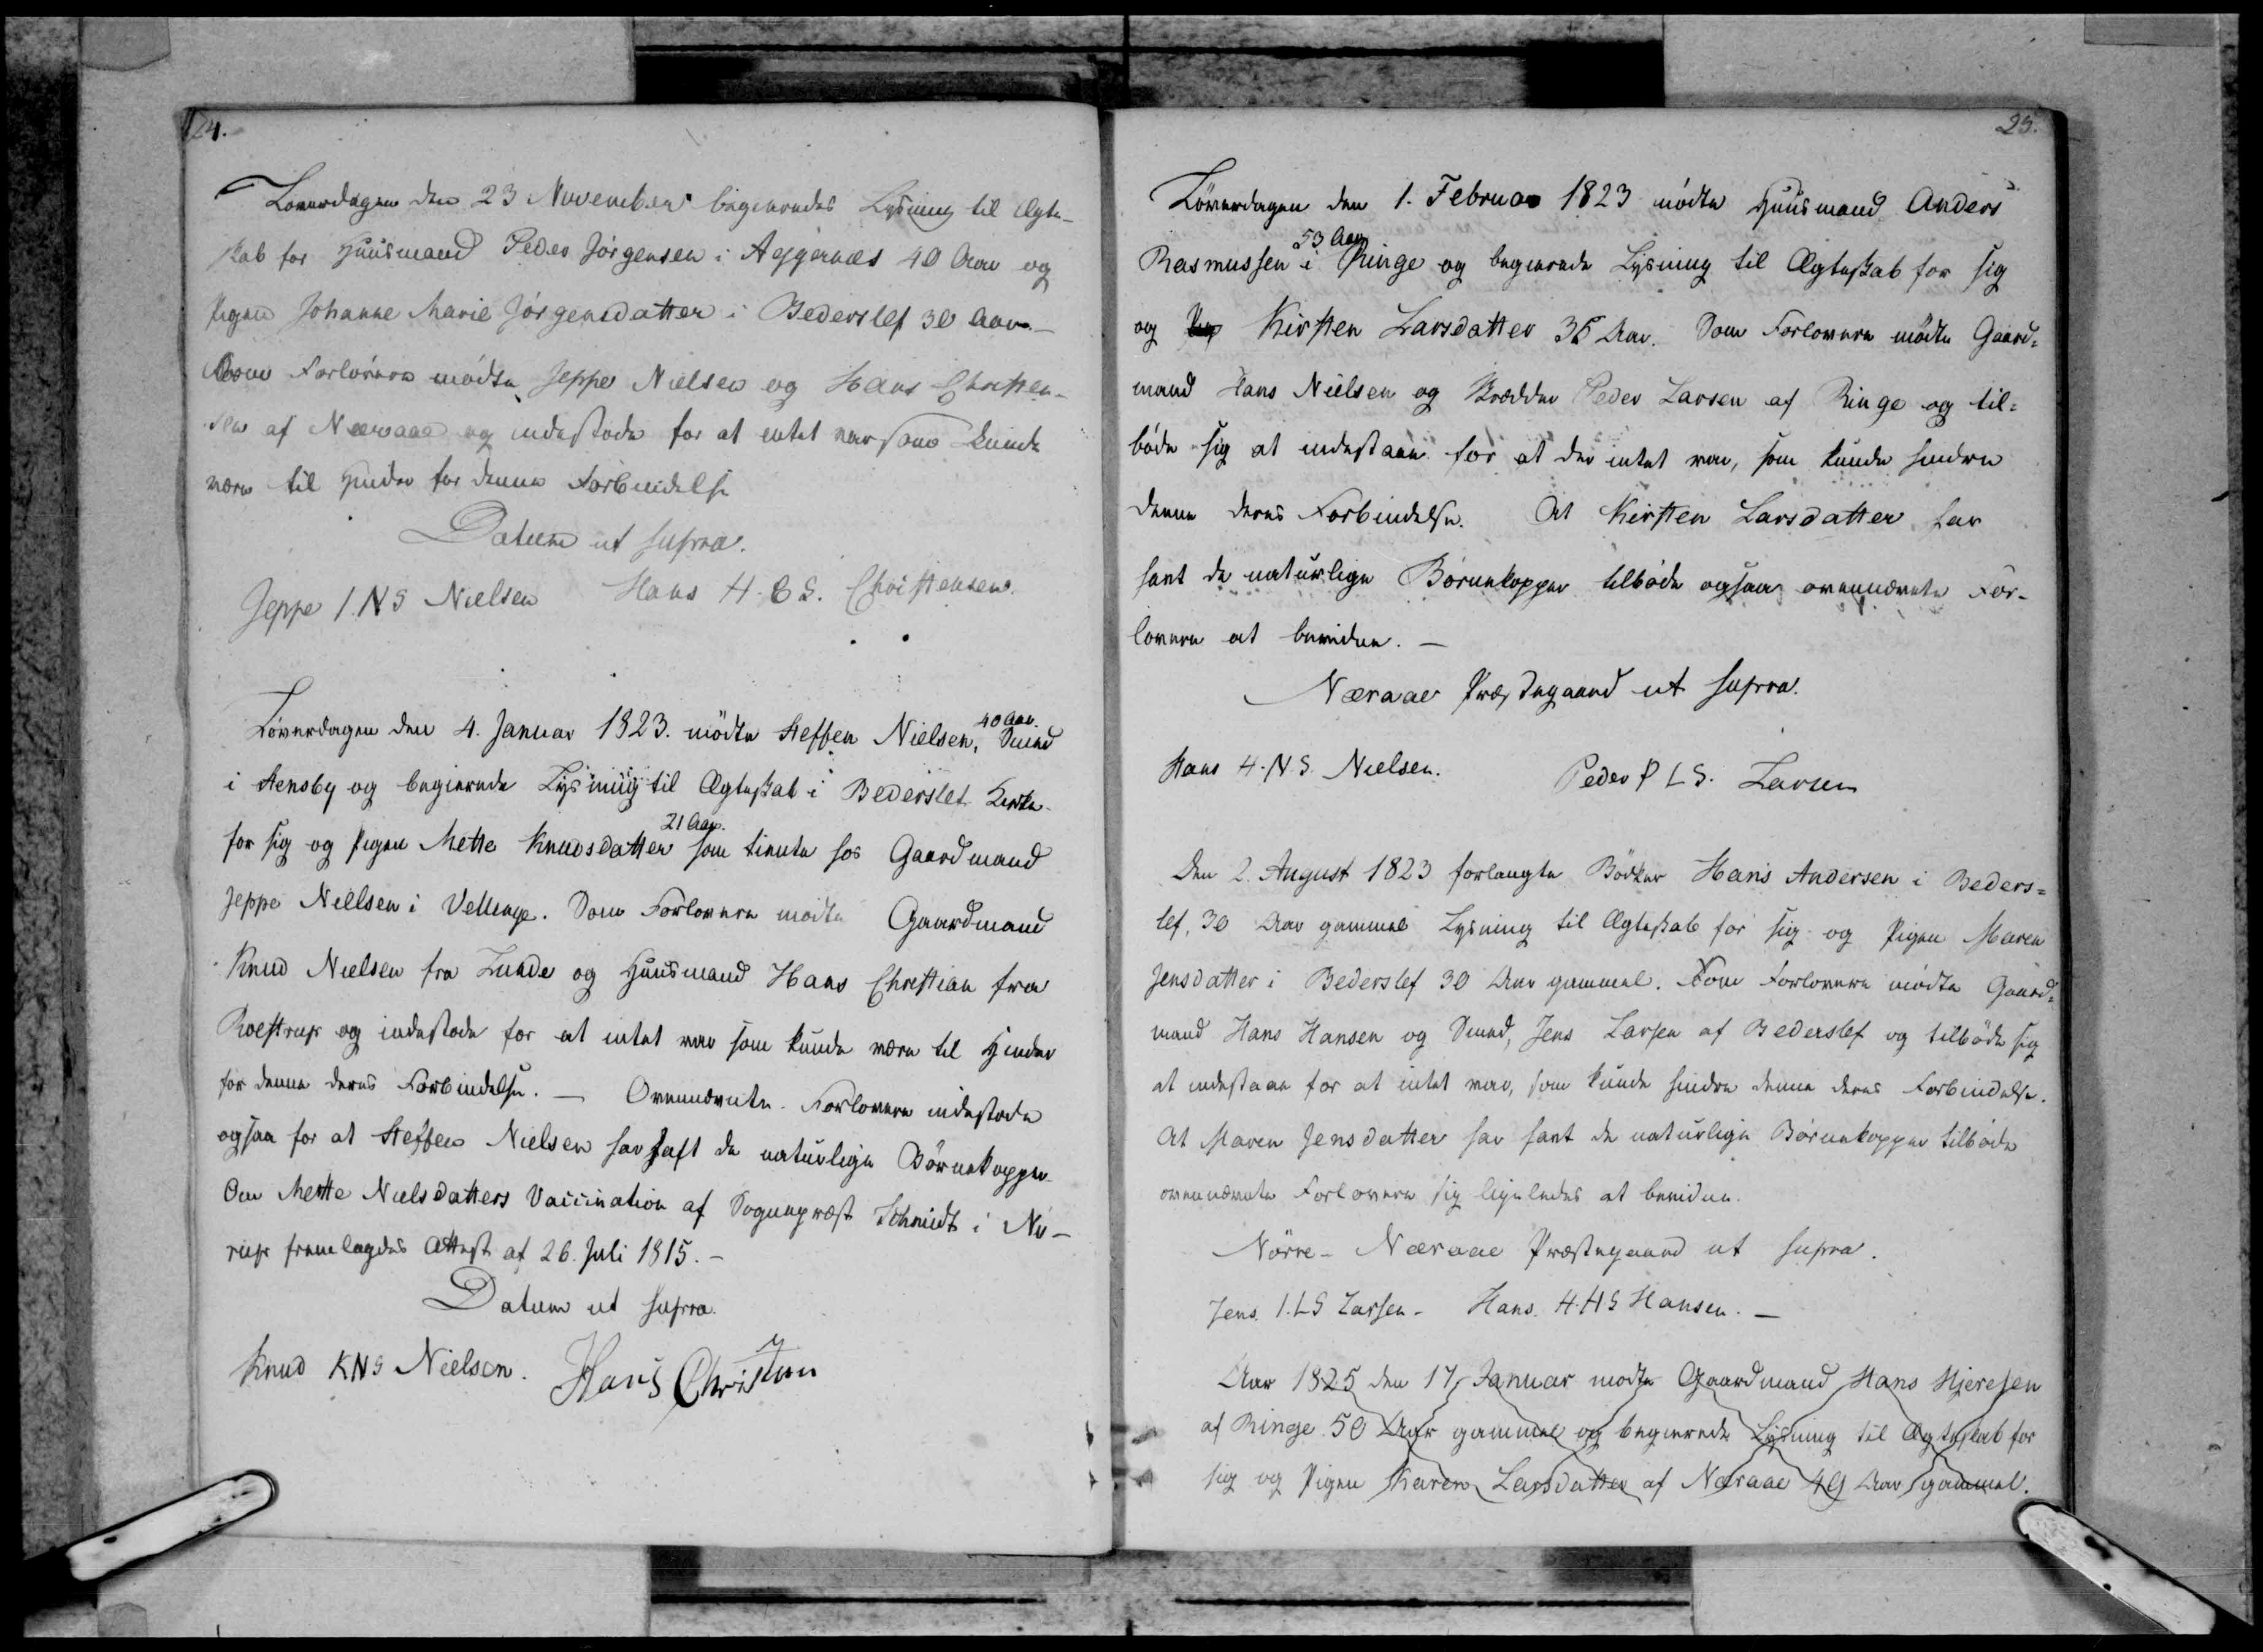 24.
Löverdagen den 23 November begieredes Lysning til Ægte-
skab for Huusmand Peder Jörgensen i Aggernæs 40 Aar og
Pigen Johanne Marie Jörgensdatter i Bederslef 30 Aar. —
Som Forlovere mödte Jeppe Nielsen og Hans Christen-
sen af Næraae og indestode for at intet var som kunde
være til Hinder for denne Forbindelse
Datum ut supra.
Jeppe I.N S Nielsen Hans H. C S. Christensen.
Löverdagen den 4. Januar 1823. mödte Steffen Nielsen, 40 Aar. Smed
i Stensby og begierede Lysning til Ægteskab i Bederslef Kirke
for sig og Pigen Mette Knudsdatter 21 Aar. som tiente hos Gaardmand
Jeppe Nielsen i Vellinge. Som Forlovere mödte Gaardmand
Knud Nielsen fra Lunde og Huusmand Hans Christian fra
Roestrup og indestode for at intet var som kunde være til Hinder
for denne deres Forbindelse. — Ovennævnte Forlovere indestode
ogsaa for at Steffen Nielsen har haft de naturlige Börnekopper
Om Mette Nielsdatters Vaccination af Sognepræst Schmidt i Nö-
rup fremlagdes Attest af 26. Juli 1815. —
Datum ut supra.
Knud K N S Nielsen. Hans Christian
25.
Löverdagen den 1. Februar 1823 mödte Huusmand Anders
Rasmussen 53 Aar i Ringe og begierede Lysning til Ægteskab for sig
og Kirsten Larsdatter 36 Aar. Som Forlovere mödte Gaard=
mand Hans Nielsen og Skrædder Peder Larsen af Ringe og til=
böde sig at indestaae for at der intet var, som kunde hindre
denne deres Forbindelse. At Kirsten Larsdatter har
havt de naturlige Börnekopper tilböde ogsaa ovennævnte For-
lovere at bevidne. —
Næraae Præstegaard ut supra.
Hans H. N S. Nielsen. Peder P L S. Larsen
Den 2. August 1823 forlangte Bödker Hans Andersen i Beders=
lef, 30 Aar gammel Lysning til Ægteskab for sig og Pigen Maren
Jensdatter i Bederslef 30 Aar gammel. Som Forlovere mödte Gaard=
mand Hans Hansen og Smed, Jens Larsen af Bederslef og tilböde sig
at indestaae for at intet var, som kunde hindre denne deres Forbindelse.
At Maren Jensdatter har havt de naturlige Börnekopper tilböde
ovennævnte Forlovere sig ligeledes at bevidne.
Nörre- Næraae Præstegaard ut supra.
Jens I. L S Larsen - Hans H. H S Hansen. —
Aar 1825 den 17 Januar mödte Gaardmand Hans
af Ringe 50 Aar gammel og begierede Lysning til Ægteskab for
sig og Pigen Karen Larsdatter af Næraae 49 Aar gammel.